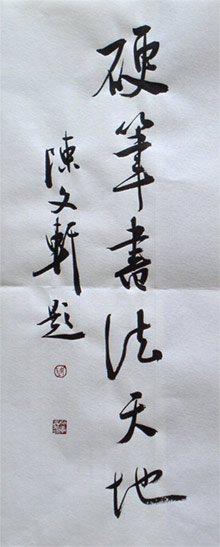 硬筆書法天地
陳文軒題